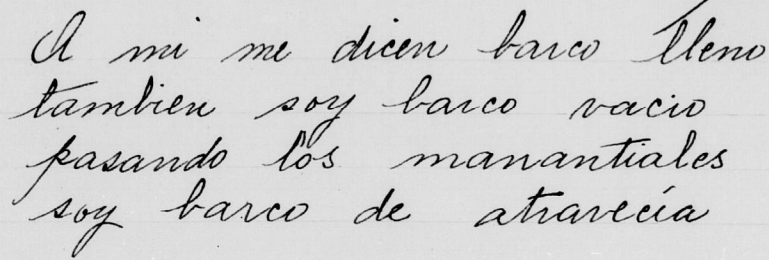 A mi me dicen barco lleno
tambien soy barco vacio
pasando los manantiales
soy barco de atravecía